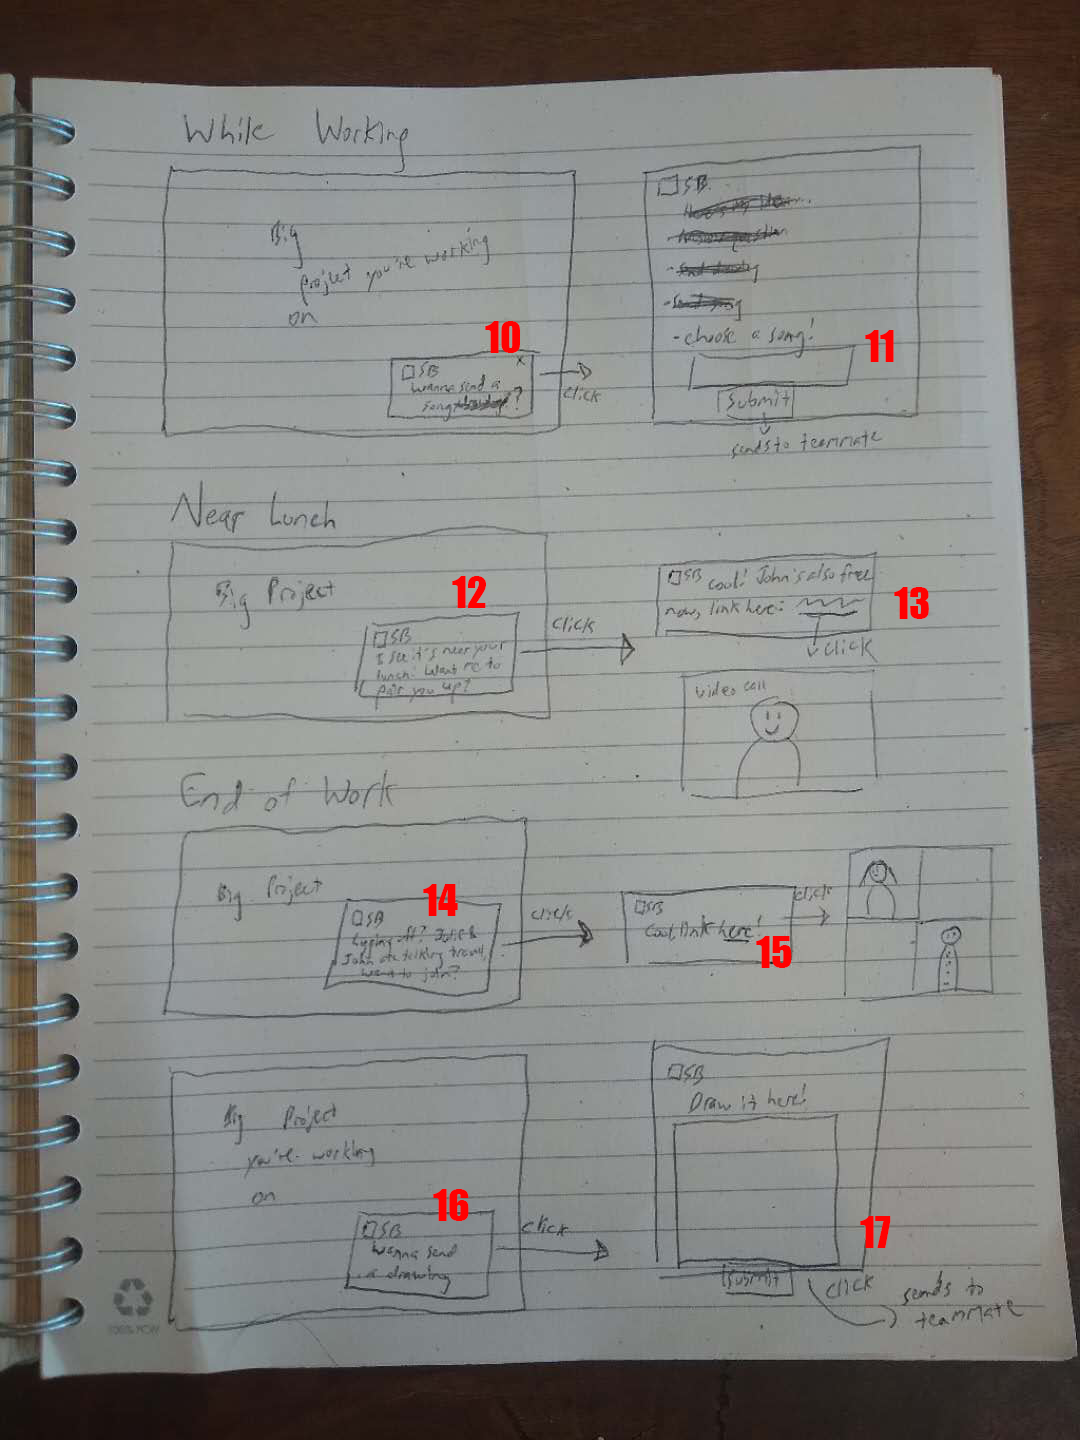 While Working
Big
Project you're working
on
10
SB x
Wanna send a
song ?
click
SB
-choose a song!
11
Submit
sends to teammate
Near Lunch
Big Project
12
SB
I see it's near your
lunch! Want me to
pair you up?
click
SB cool! John's also free
now, link here:
13
click
Video call
End of Work
Big Project
14
SB
John are talking travel,
want to join?
click
SB
Cool link here!
15
click
Big Project
you're working
on
16
SB
Wanna send
a drawing
click
SB
Draw it here!
17
Submit
click
sends to
teammate
100% PCW